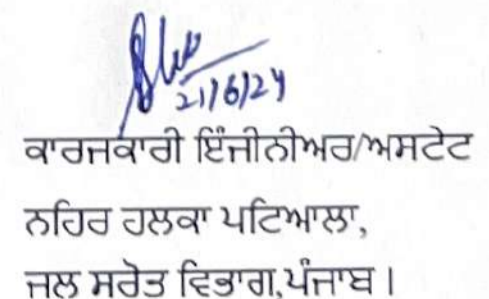 21/6/24
ਕਾਰਜਕਾਰੀ ਇੰਜੀਨੀਅਰ/ਅਸਟੇਟ
ਨਹਿਰ ਹਲਕਾ ਪਟਿਆਲਾ,
ਜਲ ਸਰੋਤ ਵਿਭਾਗ,ਪੰਜਾਬ।